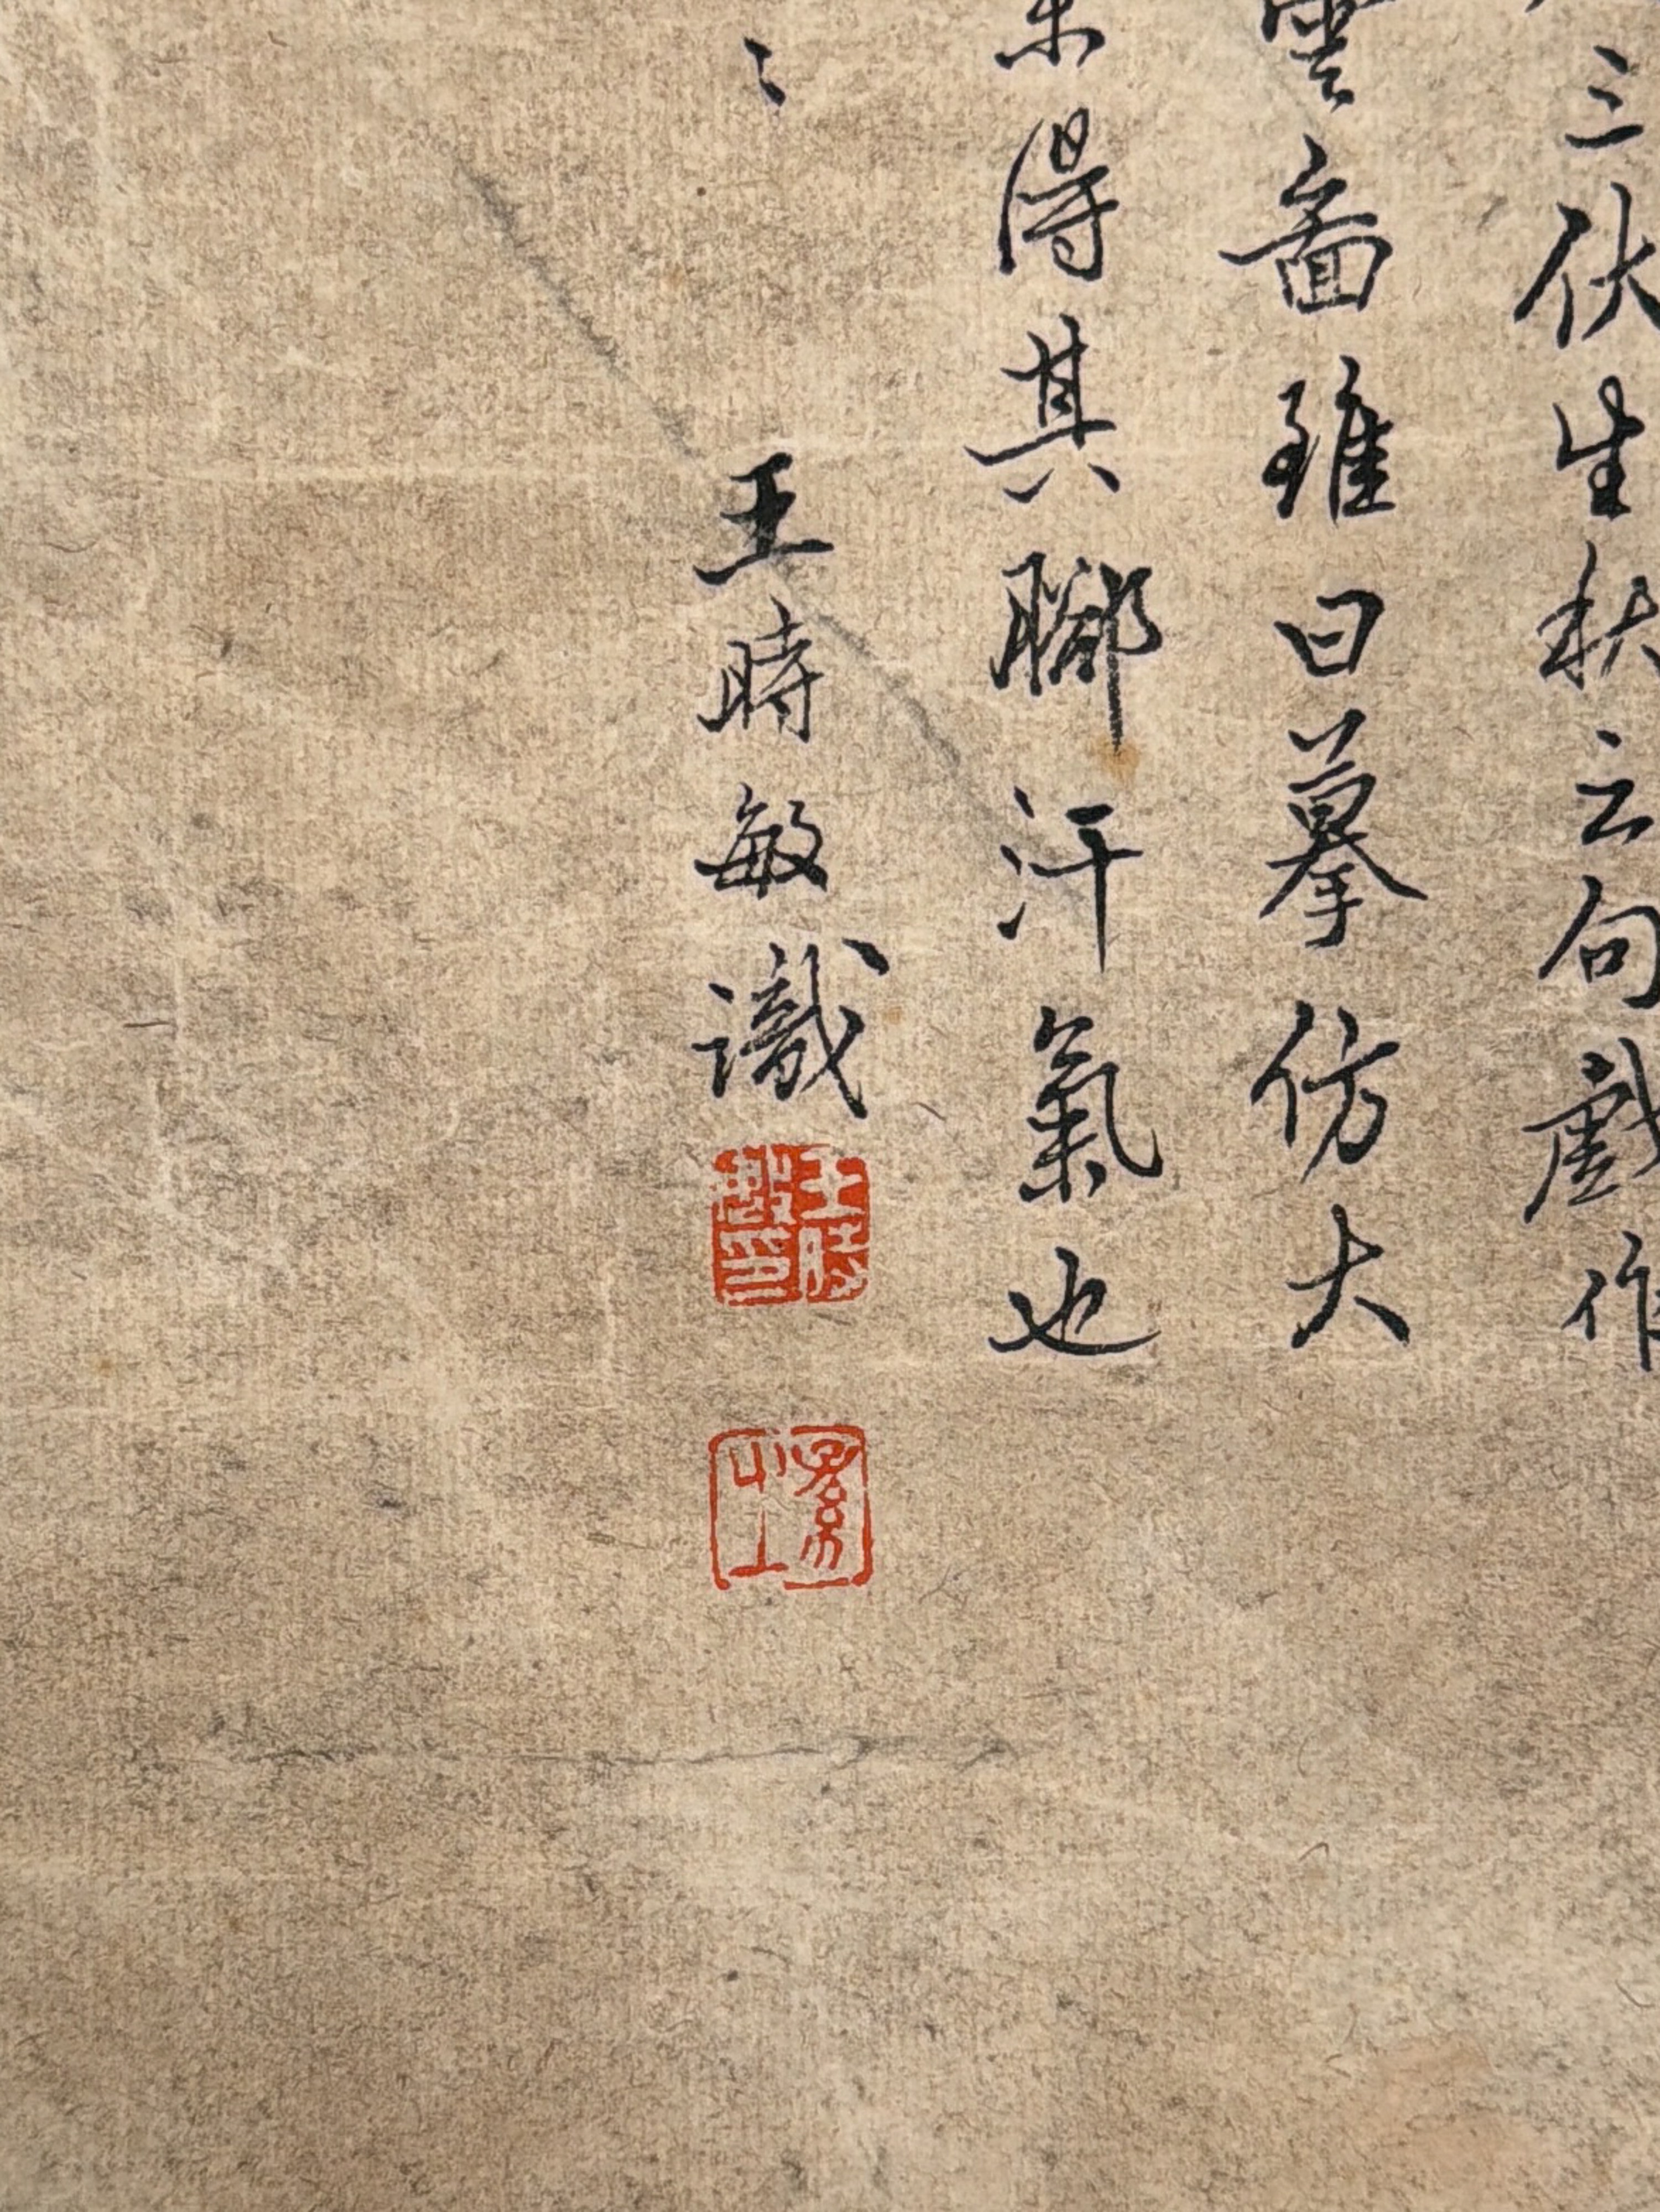 三伏生秋云句戲作
雲啚雖曰摹仿大
未得其腳汗氣也
王時敏識
王時敏印